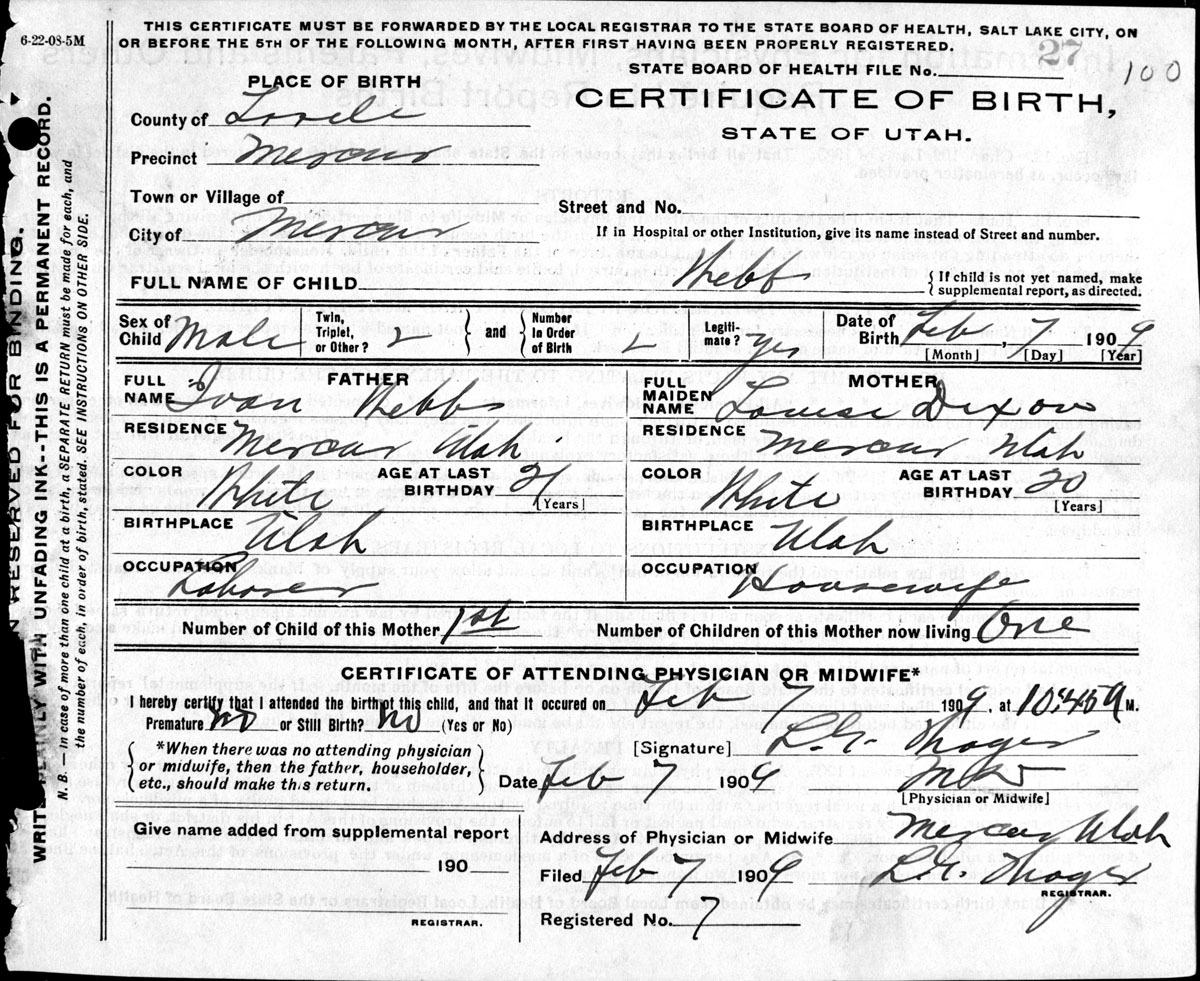 6-22-08-5M
THIS CERTIFICATE MUST BE FORWARDED BY THE LOCAL REGISTRAR TO THE STATE BOARD OF HEALTH, SALT LAKE CITY, ON
OR BEFORE THE 5TH OF THE FOLLOWING MONTH, AFTER FIRST HAVING BEEN PROPERLY REGISTERED.
27
100
PLACE OF BIRTH
STATE BOARD OF HEALTH FILE No.
CERTIFICATE OF BIRTH,
STATE OF UTAH.
County of
Precinct Mercur
Town or Village of
Street and No.
City of Mercur
If in Hospital or other Institution, give its name instead of Street and number.
FULL NAME OF CHILD Webb
{ If child is not yet named, make
supplemental report, as directed.
Sex of Child Male
Twin, Triplet, or Other? 2 } and { Number in Order of Birth 2
Legitimate? Yes
Date of Birth Feb, 7 1909
[Month] [Day] [Year]
FATHER
FULL NAME Ivan Webb
MOTHER
FULL MAIDEN NAME Louise Dixon
RESIDENCE Mercur Utah
RESIDENCE Mercur Utah
COLOR White AGE AT LAST BIRTHDAY 21 [Years]
COLOR White AGE AT LAST BIRTHDAY 20 [Years]
BIRTHPLACE Utah
BIRTHPLACE Utah
OCCUPATION Laborer
OCCUPATION Housewife
Number of Child of this Mother 1st
Number of Children of this Mother now living One
CERTIFICATE OF ATTENDING PHYSICIAN OR MIDWIFE*
I hereby certify that I attended the birth of this child, and that it occured on Feb 7 1909, at 10:45 A M.
Premature? No or Still Birth? No (Yes or No)
*When there was no attending physician
or midwife, then the father, householder,
etc., should make this return.
[Signature]
Date Feb 7 1909
[Physician or Midwife]
Give name added from supplemental report
190
REGISTRAR.
Address of Physician or Midwife Mercur Utah
Filed Feb 7 1909
REGISTRAR.
Registered No. 7
N RESERVED FOR BINDING.
WRITE PLAINLY WITH UNFADING INK--THIS IS A PERMANENT RECORD.
N. B.—In case of more than one child at a birth, a SEPARATE RETURN must be made for each, and
the number of each, in order of birth, stated. SEE INSTRUCTIONS ON OTHER SIDE.